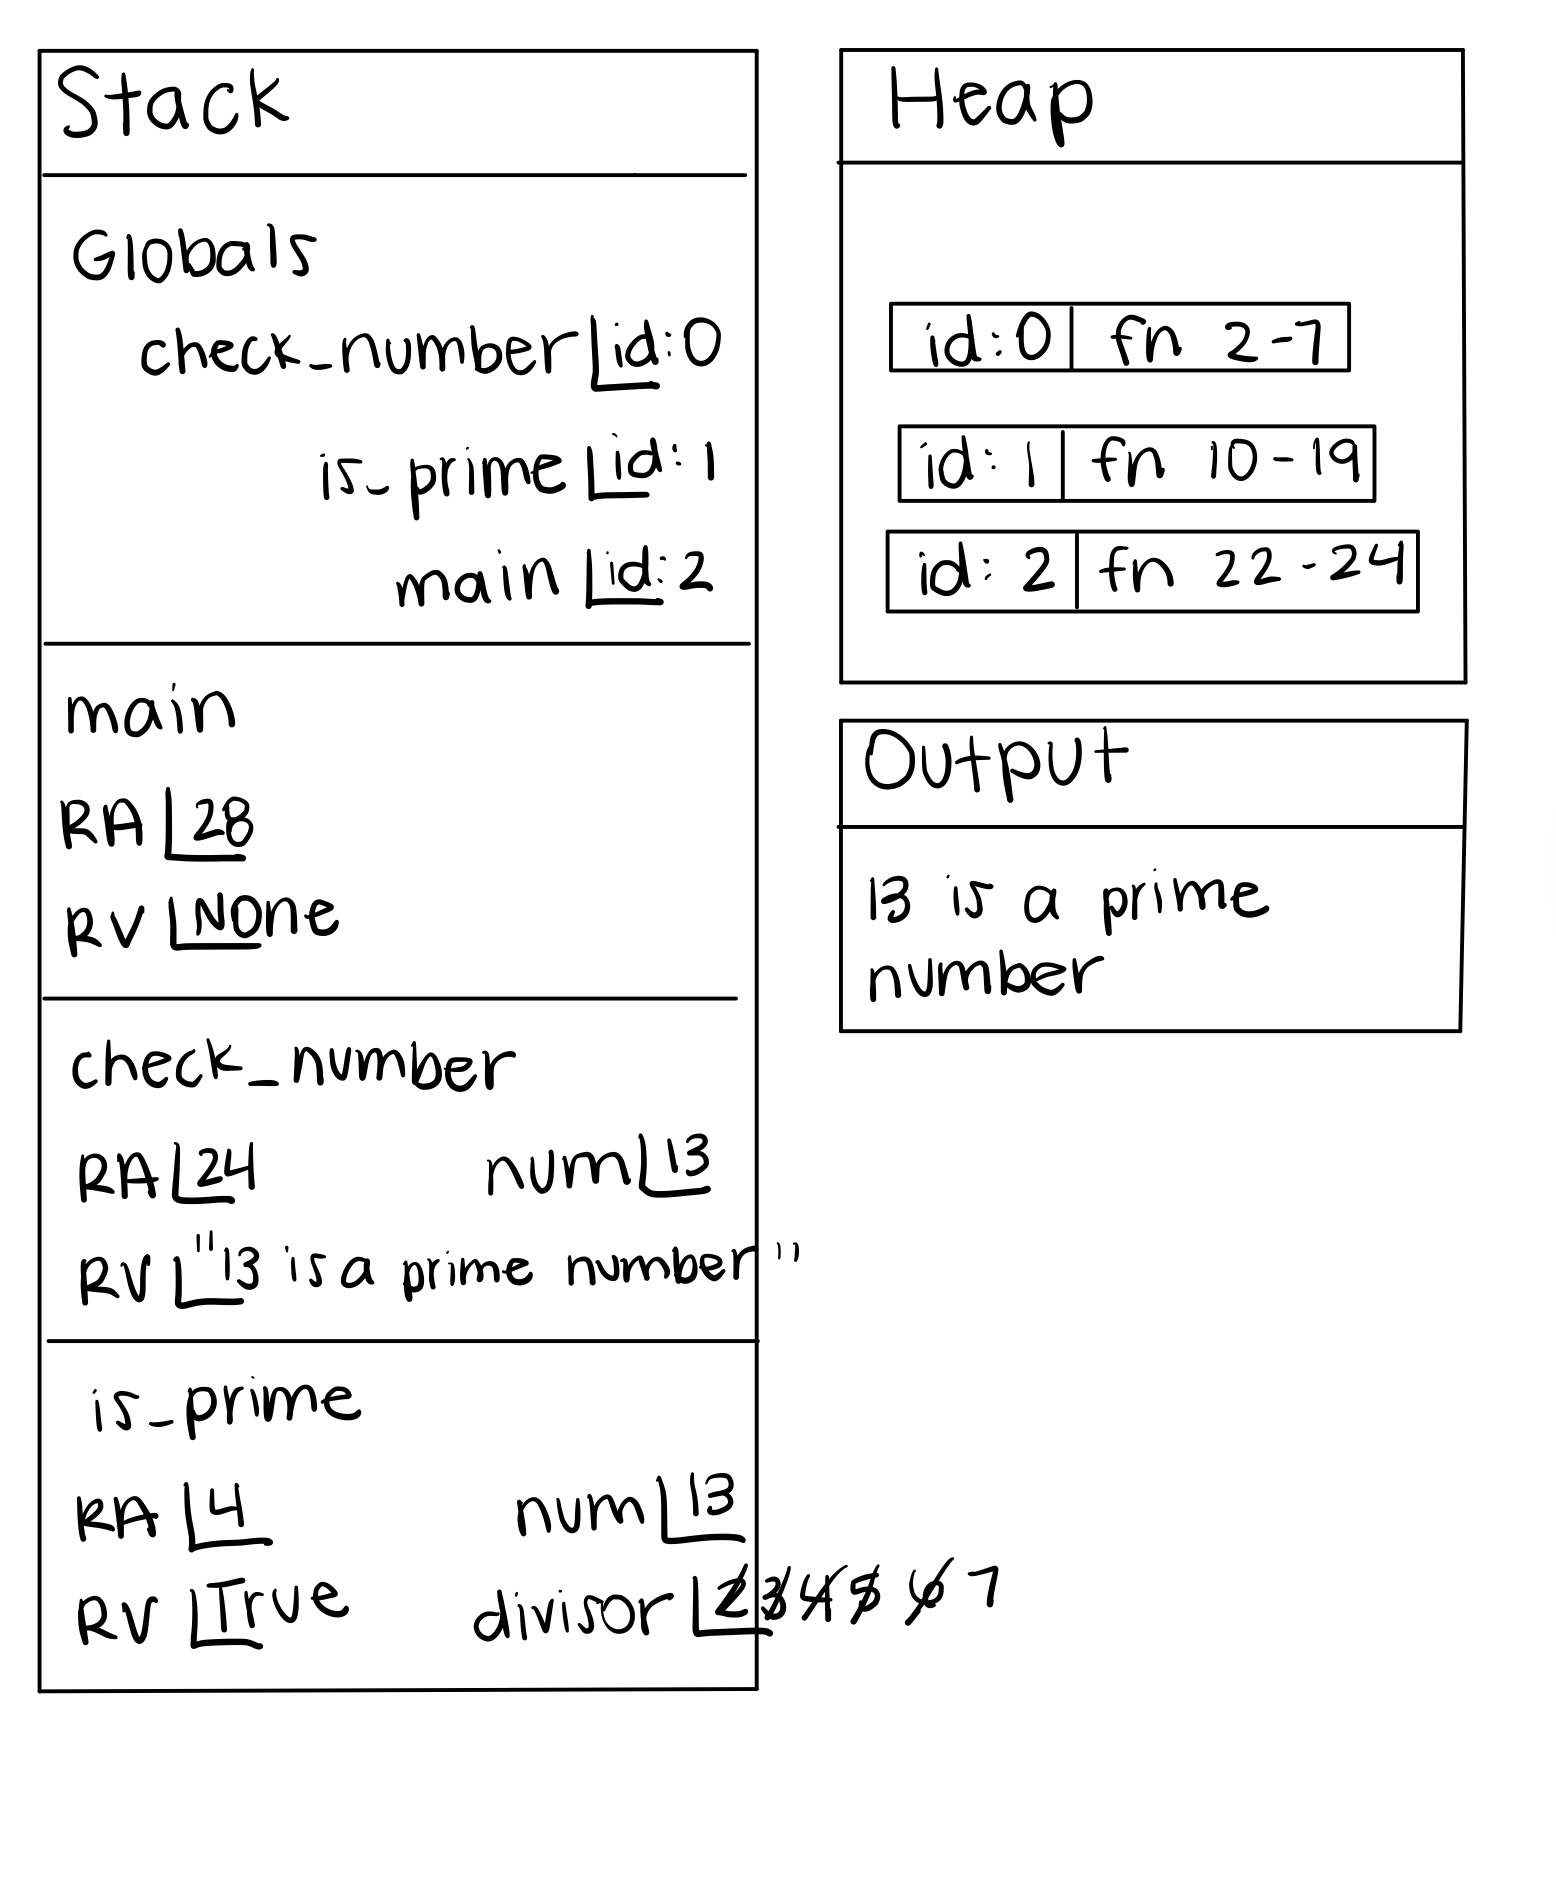 Stack
Globals
check_number id:0
is_prime id:1
main id:2
main
RA 28
RV None
check_number
RA 24 num 13
RV "13 is a prime number"
is_prime
RA 4 num 13
RV True divisor 2 3 4 5 6 7
Heap
id:0 fn 2-7
id:1 fn 10-19
id:2 fn 22-24
Output
13 is a prime
number